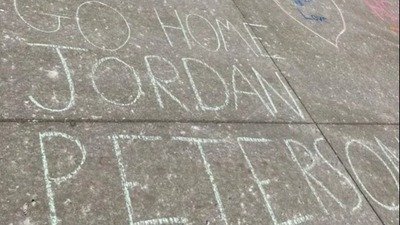 GO HOME
JORDAN
PETERSON
Love